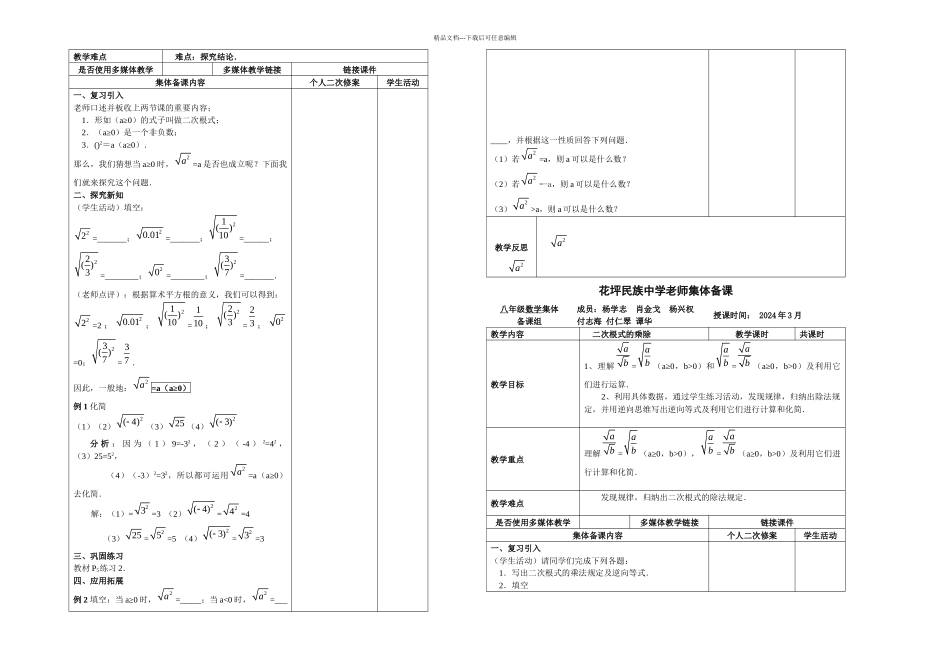 精品文档---下载后可任意编辑
教学难点 难点：探究结论．
是否使用多媒体教学 多媒体教学链接 链接课件
集体备课内容 个人二次修案 学生活动
一、复习引入
老师口述并板收上两节课的重要内容；
1．形如（a≥0）的式子叫做二次根式；
2．（a≥0）是一个非负数；
3．()²＝a（a≥0）．
那么，我们猜想当a≥0时，√a²=a是否也成立呢？下面我
们就来探究这个问题．
二、探究新知
（学生活动）填空：
√2²=_______；√0.01²=_______；√(1/10)²=______；
√(2/3)²=________；√0²=________；√(3/7)²=_______．
（老师点评）：根据算术平方根的意义，我们可以得到：
√2²=2；√0.01²；√(1/10)²=1/10；√(2/3)²=2/3；√0²
=0；√(3/7)²=3/7．
因此，一般地：√a²=a（a≥0）
例1化简
（1）（2）√(-4)²（3）√25（4）√(-3)²
分析：因为（1）9=-3²，（2）（-4）²=4²，
（3）25=5²，
（4）（-3）²=3²，所以都可运用√a²=a（a≥0）
去化简．
解：（1）=√3²=3（2）√(-4)²=√4²=4
（3）√25=√5²=5（4）√(-3)²=√3²=3
三、巩固练习
教材P₅练习2．
四、应用拓展
例2填空：当a≥0时，√a²=_____；当a<0时，√a²=___
____，并根据这一性质回答下列问题．
（1）若√a²=a，则a可以是什么数？
（2）若√a²=-a，则a可以是什么数？
（3）√a²>a，则a可以是什么数？
教学反思
√a²
√a²
花坪民族中学老师集体备课
八年级数学集体备课组 成员：杨学志 肖金戈 杨兴权 付志海 付仁翠 谭华 授课时间： 2024年3月
教学内容 二次根式的乘除 教学课时 共课时
教学目标
1、理解√a/√b=√(a/b)（a≥0，b>0）和√(a/b)=√a/√b（a≥0，b>0）及利用它
们进行运算．
2、利用具体数据，通过学生练习活动，发现规律，归纳出除法规
定，并用逆向思维写出逆向等式及利用它们进行计算和化简．
教学重点
理解√a/√b=√(a/b)（a≥0，b>0），√(a/b)=√a/√b（a≥0，b>0）及利用它们进
行计算和化简．
教学难点 发现规律，归纳出二次根式的除法规定．
是否使用多媒体教学 多媒体教学链接 链接课件
集体备课内容 个人二次修案 学生活动
一、复习引入
（学生活动）请同学们完成下列各题：
1．写出二次根式的乘法规定及逆向等式．
2．填空